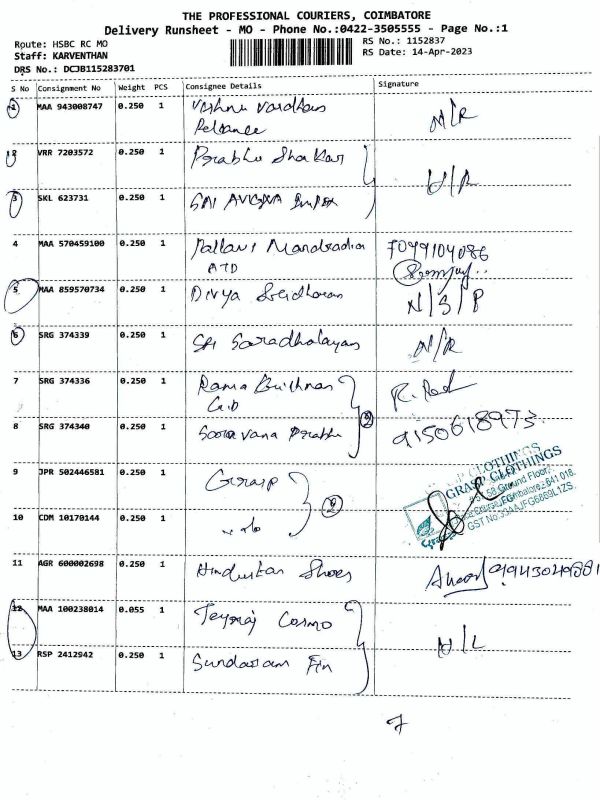 THE PROFESSIONAL COURIERS, COIMBATORE
Delivery Runsheet - MO - Phone No.:0422-3505555 - Page No.:1
Route: HSBC RC MO
RS No.: 1152837
Staff: KARVENTHAN
RS Date: 14-Apr-2023
DRS No.: DCJB115283701
S No Consignment No Weight PCS Consignee Details Signature
1 MAA 943008747 0.250 1 Vishnu Vardhan
Reliance N/R
2 VRR 7203572 0.250 1 Prabhu Shakar
3 SKL 623731 0.250 1 SAI AVIGNA Impex
4 MAA 570459100 0.250 1 Pallavi 7099104086
ATD
5 MAA 859570734 0.250 1 Divya Sridharan N/S/P
6 SRG 374339 0.250 1 Sri Saradhalayam N/R
7 SRG 374336 0.250 1 Rama Krishnan
8 SRG 374340 0.250 1 Saravana Prabhu 2 9150618973
9 JPR 502446581 0.250 1 Grasp
10 CDM 10170144 0.250 1 2
GRASP CLOTHINGS
Ground Floor
641 018.
GST No:33AAJFG6869L1ZS
11 AGR 600002698 0.250 1 Hindustan Shoes 9943049881
12 MAA 100238014 0.055 1 Teyraj Cosmo
13 RSP 2412942 0.250 1 Sundaram Fin
7